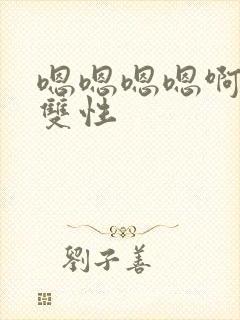 嗯嗯嗯嗯啊
雙性
劉子善